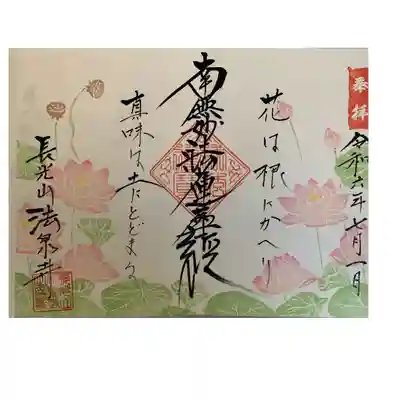 奉拝
令和六年七月一日
花は根にかへり
南無妙法蓮華経
真味は土にとどまる
長光山 法泉寺